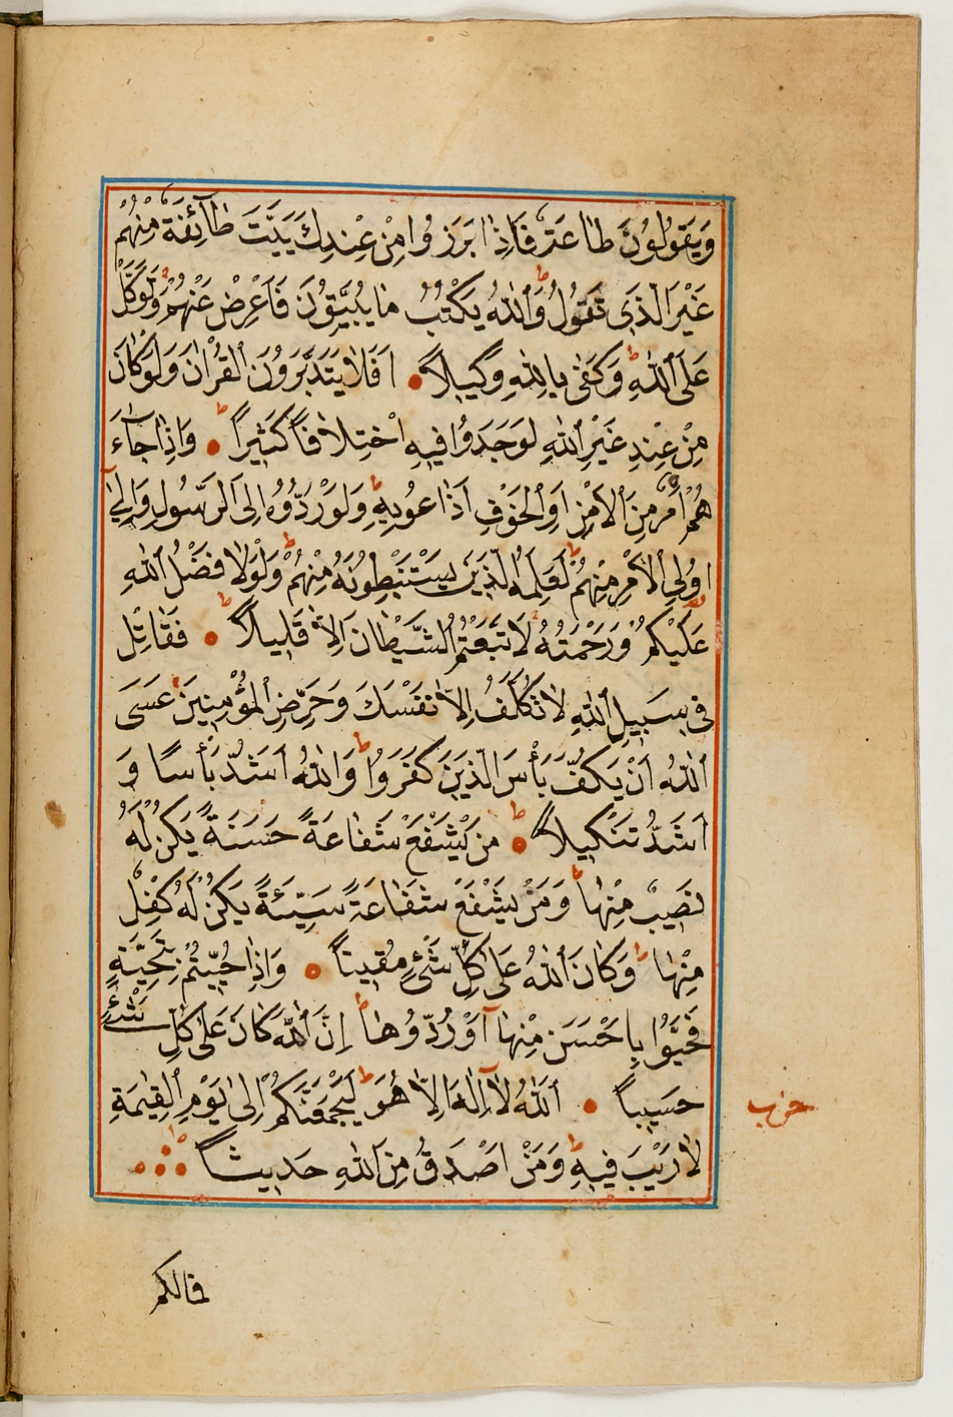 وَيَقُولُونَ طَاعَةٌ فَاِذَا بَرَزُوا مِنْ عِنْدِكَ بَيَّتَ طَآئِفَةٌ مِنْهُمْ
غَيْرَ الَّذِي تَقُولُ وَاللّٰهُ يَكْتُبُ مَا يُبَيِّتُونَ فَاَعْرِضْ عَنْهُمْ وَتَوَكَّلْ
عَلَى اللّٰهِ وَكَفٰى بِاللّٰهِ وَكِيلاً اَفَلَا يَتَدَبَّرُونَ الْقُرْاٰنَ وَلَوْ كَانَ
مِنْ عِنْدِ غَيْرِ اللّٰهِ لَوَجَدُوا فِيهِ اخْتِلَافاً كَثِيراً وَاِذَا جَآءَ
هُمْ اَمْرٌ مِنَ الْاَمْنِ اَوِ الْخَوْفِ اَذَاعُوا بِهِ وَلَوْ رَدُّوهُ اِلَى الرَّسُولِ وَاِلٰٓى
اُولِي الْاَمْرِ مِنْهُمْ لَعَلِمَهُ الَّذِينَ يَسْتَنْبِطُونَهُ مِنْهُمْ وَلَوْلَا فَضْلُ اللّٰهِ
عَلَيْكُمْ وَرَحْمَتُهُ لَاتَّبَعْتُمُ الشَّيْطَانَ اِلَّا قَلِيلاً فَقَاتِلْ
فِي سَبِيلِ اللّٰهِ لَا تُكَلَّفُ اِلَّا نَفْسَكَ وَحَرِّضِ الْمُؤْمِنِينَ عَسَى
اللّٰهُ اَنْ يَكُفَّ بَأْسَ الَّذِينَ كَفَرُوا وَاللّٰهُ اَشَدُّ بَأْسًا وَ
اَشَدُّ تَنْكِيلاً مَنْ يَشْفَعْ شَفَاعَةً حَسَنَةً يَكُنْ لَهُ
نَصِيبٌ مِنْهَا وَمَنْ يَشْفَعْ شَفَاعَةً سَيِّئَةً يَكُنْ لَهُ كِفْلٌ
مِنْهَا وَكَانَ اللّٰهُ عَلٰى كُلِّ شَيْءٍ مُقِيتاً وَاِذَا حُيِّيتُمْ بِتَحِيَّةٍ
فَحَيُّوا بِاَحْسَنَ مِنْهَآ اَوْ رُدُّوهَا اِنَّ اللّٰهَ كَانَ عَلٰى كُلِّ شَيْءٍ
حَسِيباً اَللّٰهُ لَآ اِلٰهَ اِلَّا هُوَ لَيَجْمَعَنَّكُمْ اِلٰى يَوْمِ الْقِيٰمَةِ
لَا رَيْبَ فِيهِ وَمَنْ اَصْدَقُ مِنَ اللّٰهِ حَدِيثاً
حزب
فمالكم